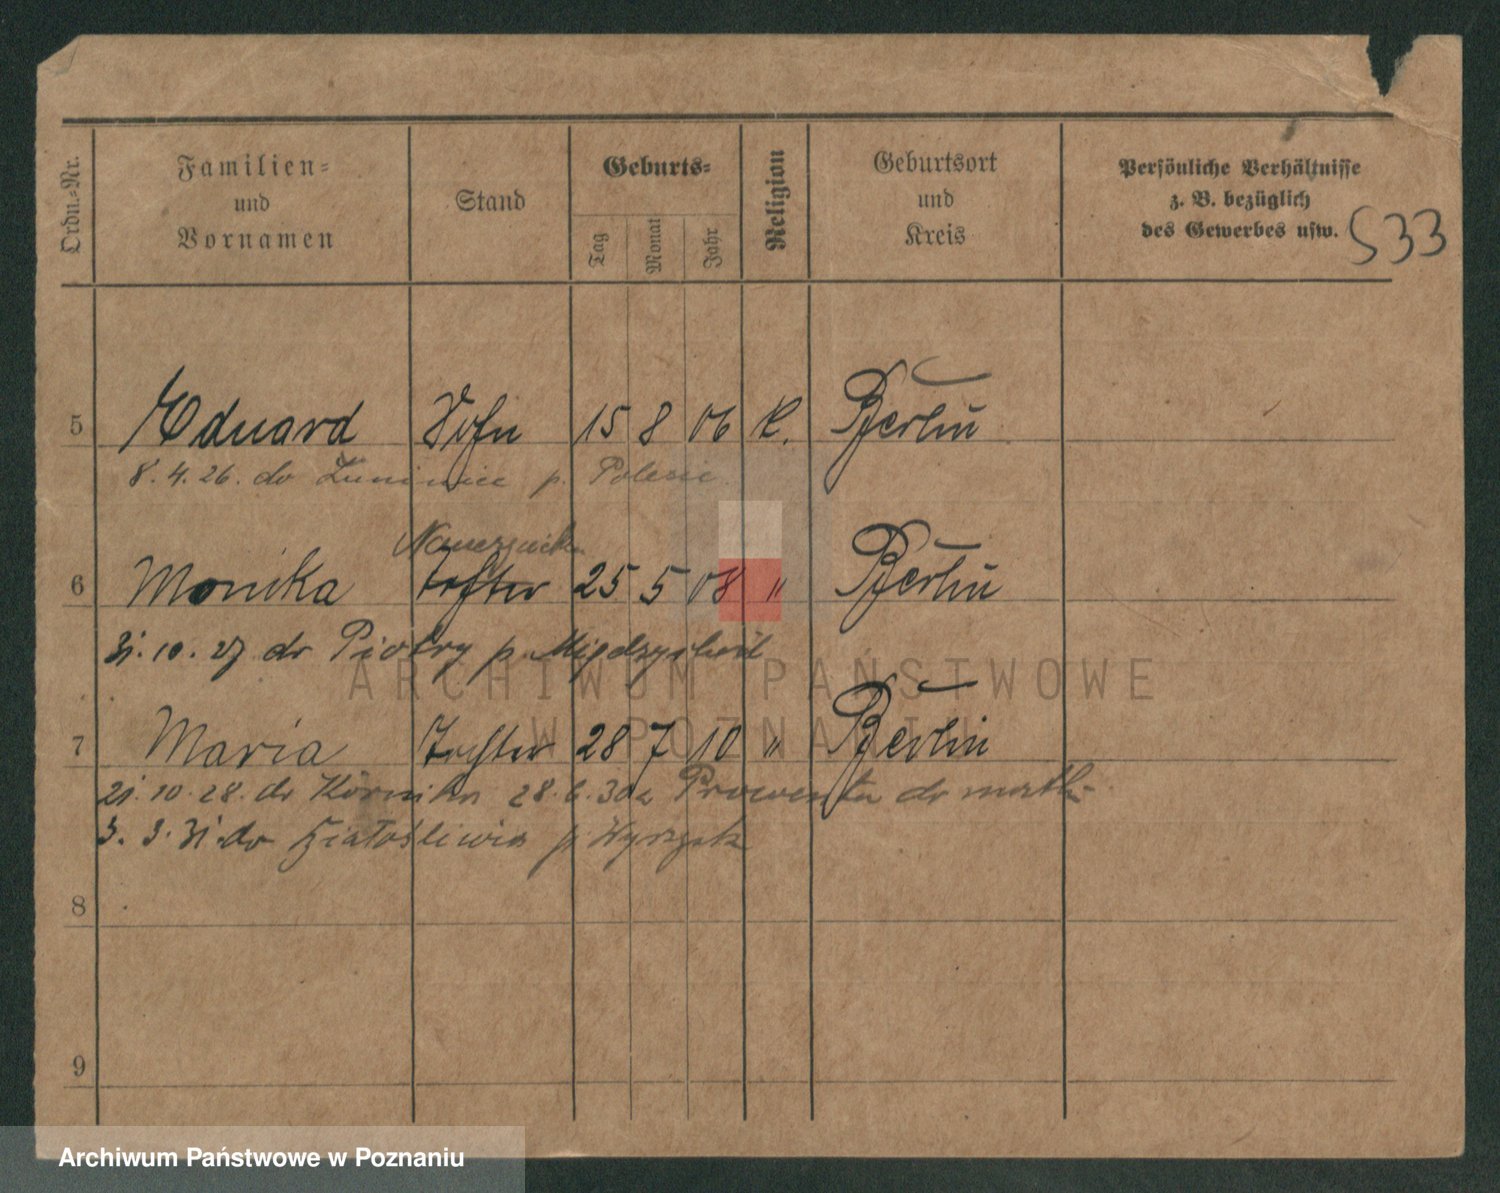 Ordn.-Nr.
Familien-
und
Vornamen
Stand
Geburts-
Tag
Monat
Jahr
Religion
Geburtsort
und
Kreis
Persönliche Verhältnisse
z. B. bezüglich
des Gewerbes usw.
533
5 Eduard Sohn 15 8 06 K. Berlin
8. 4. 26. do p. Polesie
6 Monika Tochter 25 5 08 " Berlin
31. 10. 27 do Piotry p. Międzychód
7 Maria Tochter 28 7 10 " Berlin
21. 10. 28. do Kórnika 28. 6. 30 z Prowentu do matki
3. 3. 31 do Białośliwia p. Wyrzysk
8
9
ARCHIWUM PAŃSTWOWE
W POZNANIU
Archiwum Państwowe w Poznaniu